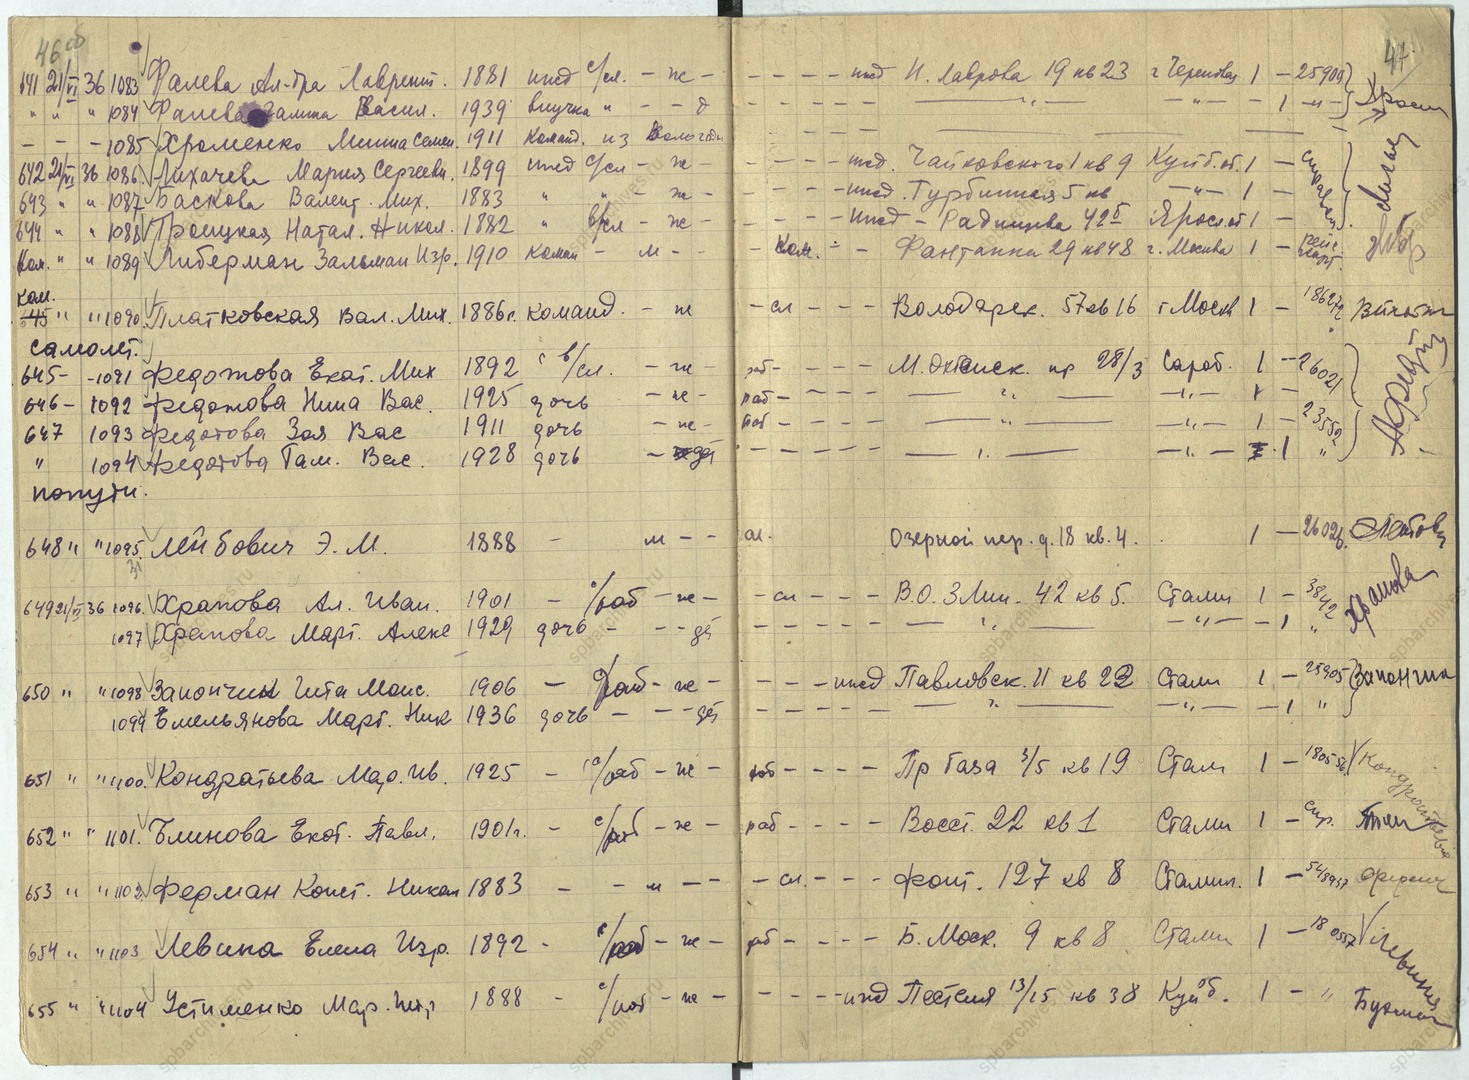 46 об
47
641 21/VI 36 1083 Фалева Ал-дра Лаврент. 1881 ижд с/сл. - ж - - - - - ижд И. Лаврова 19 кв 23 г. Череповец 1 - 25909
" " " 1084 Фалева Галина Васил. 1939 внучка " - - д - - - - " - " - 1 - " -
- - - 1085 Хроменко Миша Семен. 1911 Команд. из Вологды
642 21/VI 36 1086 Лихачева Мария Сергеевн. 1899 ижд с/сл - ж - - - - - ижд. Чайковского 1 кв 9 Куйб. об. 1 - справка
643 " " 1087 Баскова Валент. Мих. 1883 " " ж - - - - - ижд. Турбинная 5 кв - " - 1 -
644 " " 1088 Троицкая Натал. Никол. 1882 " в/сл - ж - - - - - ижд - Радищева 42б Яросл. об 1 -
Ком. " " 1089 Либерман Залман Изр. 1910 Коман - м - - Ком. - - Фонтанка 29 кв 48 г. Москва 1 -
ком.
645 " " 1090 Платковская Вал. Мих. 1886 г. команд. - ж - сл - - - Володарск. 57 кв 16 г Моск 1 - 186272
самолет.
645 - - 1091 Федотова Екат. Мих 1892 с в/сл. - ж - раб - - - - М. Охтенск. пр 28/3 Сарат. 1 - 26021
646 - 1092 Федотова Нина Вас. 1925 дочь - ж - раб - - - - " - " - 1 -
647 1093 Федотова Зоя Вас 1911 дочь - ж - раб - - - - " - " - 1 - 23552
" 1094 Федотова Там. Вас. 1928 дочь - де - - - - " - " - 1 "
попутн.
648 " " 1095 Лейбович Э. М. 1888 - м - - сл. Озерной пер. д. 18 кв. 4. 1 - 26026
31
649 21/VI 36 1096. Храпова Ал. Иван. 1901 - с/раб - ж - - сл - - - В.О. 3 Лин. 42 кв 5. Стали 1 - 3842 Храпова
1097 Храпова Марг. Алекс 1929 дочь - - - де - - - - - " - " - - 1 "
650 " " 1098 Запончик Гита Моис. 1906 - с/раб - ж - - - - - ижд Павловск. 11 кв 22 Стали 1 - 28905 Запончик
1099 Емельянова Марг. Ник 1936 дочь - - - де - - - - - " - " - - 1 "
651 " " 1100. Кондратьева Мар. Ив. 1925 - с/раб - ж - раб - - - - Пр Газа 3/5 кв 19 Стали 1 - 180556 Кондратьева
652 " " 1101. Блинова Екат. Павл. 1901 г. - с/раб - ж - раб - - - - Восст. 22 кв 1 Стали 1 - спр.
653 " " 1102 Ферман Конст. Никол 1883 - - м - - - сл. - - - Фонт. 127 кв 8 Сталин. 1 - 548957
654 " " 1103 Левина Елена Изр. 1892 - с/раб - ж - раб - - - - Б. Моск. 9 кв 8 Стали 1 - 180557 Левина
655 " " 1104 Устименко Мар. Петр 1888 - с/раб - ж - - - - - ижд Пестеля 13/15 кв 38 Куйб. 1 - "